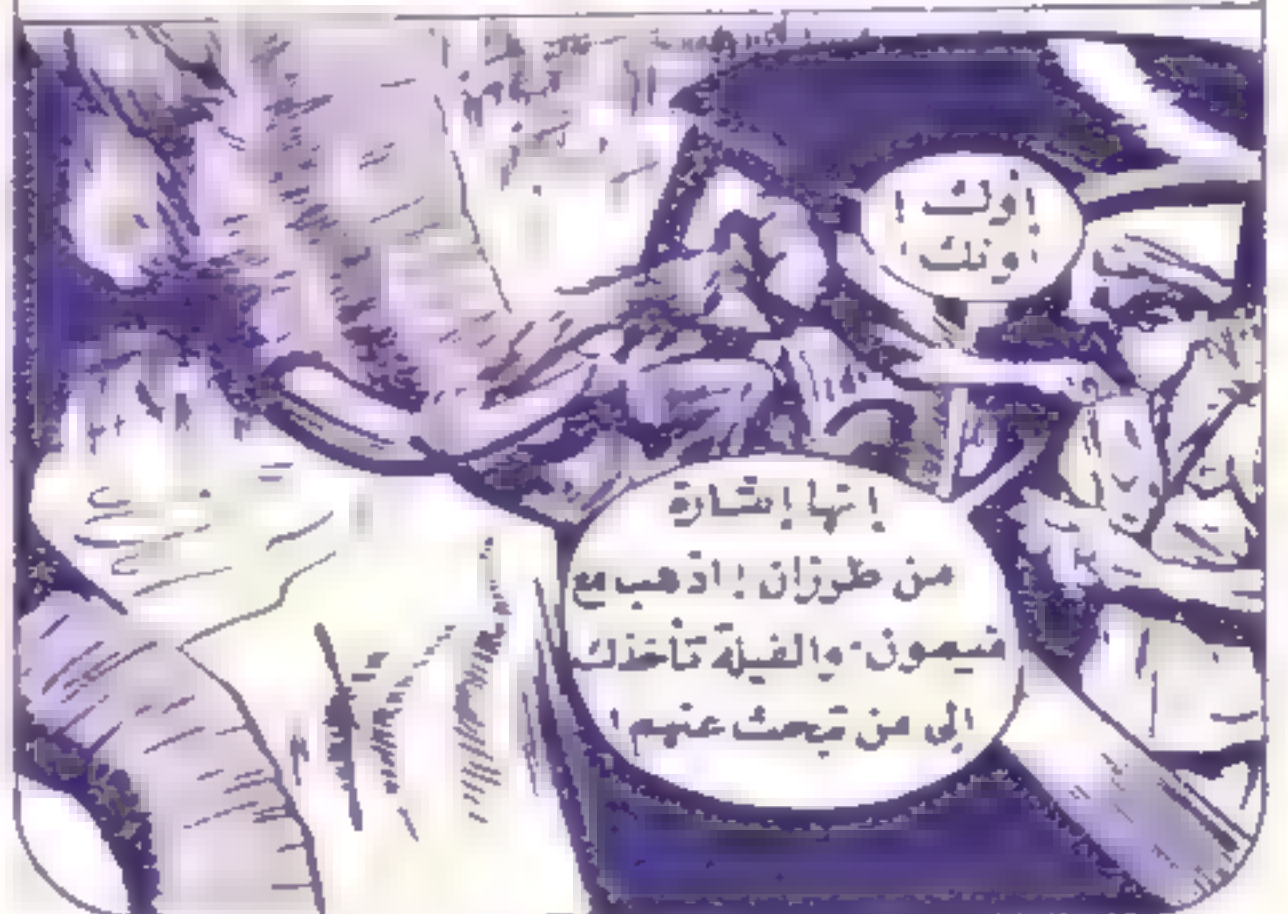 اونك!
اونك!
إنها إشارة
من طرزان! اذهب مع
ميمون والفيلة تأخذك
إلى من تبحث عنهم!